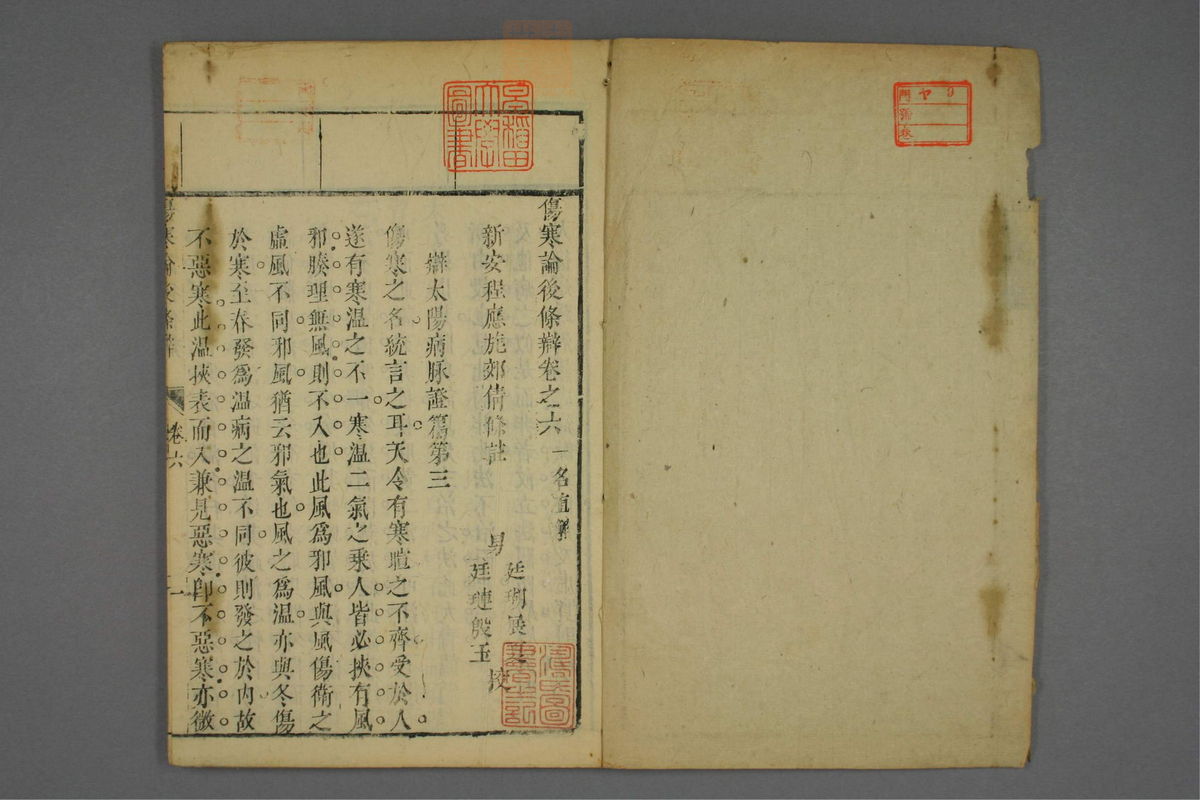 傷寒論後條辯卷之六 一名直解
新安程應旄郊倩條註
男 廷珂
廷璉殷玉 挍
辯太陽病脉證篇第三
傷寒之名統言之耳天令有寒暄之不齊受於人
遂有寒温之不一寒温二氣之乗人皆必挾有風
邪腠理無風則不入也此風爲邪風與風傷衛之
虛風不同邪風猶云邪氣也風之爲温亦與冬傷
於寒至春發爲温病之温不同彼則發之於内故
不惡寒此温挾表而入兼見惡寒卽不惡寒亦微
傷寒論後條辯 卷六 一
早稲田大學圖書
門 號 卷